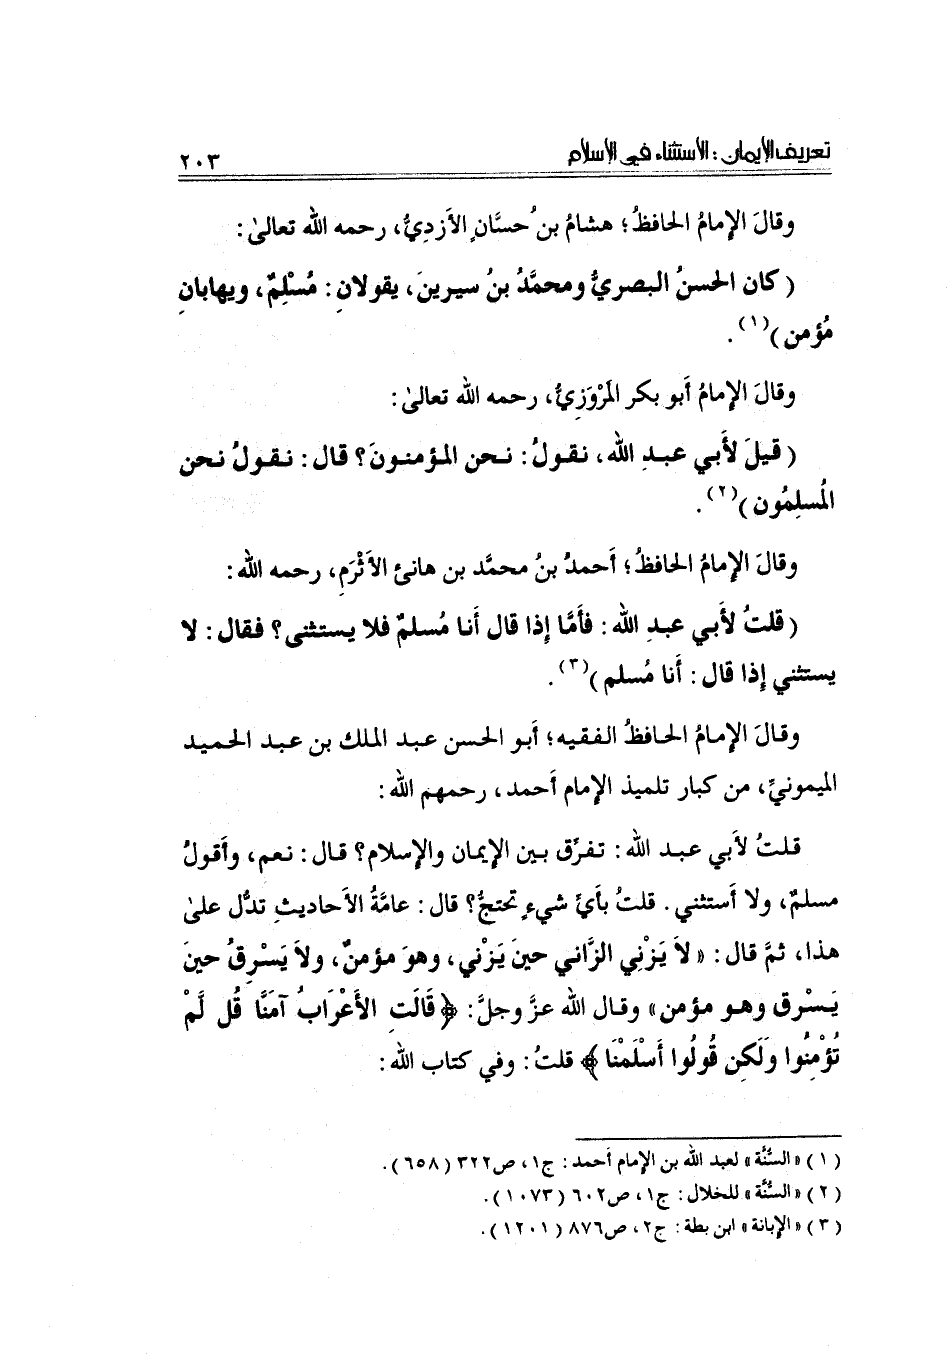 تعريف الإيمان : الاستثناء في الإسلام ٢٠٣
وقالَ الإمامُ الحافظُ؛ هشامُ بنُ حسَّانٍ الأَزدِيُّ، رحمه الله تعالىٰ:
( كان الحسنُ البصريُّ ومحمَّدُ بنُ سيرينَ، يقولانِ: مُسْلِمٌ، ويهابانِ
مُؤمن )(١).
وقالَ الإمامُ أبو بكر المَرْوَزِيُّ، رحمه الله تعالىٰ:
( قيلَ لأَبي عبدِ الله، نقولُ: نحن المؤمنونَ؟ قال: نقولُ نحن
المُسلِمُون )(٢).
وقالَ الإمامُ الحافظُ؛ أحمدُ بنُ محمَّد بن هانئ الأَثْرَمِ، رحمه الله:
( قلتُ لأَبي عبدِ الله: فأَمَّا إذا قال أَنا مُسلمٌ فلا يستثنى؟ فقال: لا
يستثني إذا قال: أَنا مُسلم )(٣).
وقالَ الإمامُ الحافظُ الفقيه؛ أبو الحسن عبد الملك بن عبد الحميد
الميمونيِّ، من كبار تلميذ الإمام أحمد، رحمهم الله:
قلتُ لأَبي عبد الله: تفرِّق بين الإيمان والإسلام؟ قال: نعم، وأَقولُ
مسلمٌ، ولا أَستثني. قلتُ بأَيِّ شيءٍ تحتجُّ؟ قال: عامَّةُ الأحاديثِ تدلُّ علىٰ
هذا، ثمَّ قال: « لاَ يَزْنِي الزَّاني حينَ يَزْني، وهوَ مؤمنٌ، ولاَ يَسْرِقُ حينَ
يَسْرق وهو مؤمن» وقال الله عزَّ وجلَّ: ﴿ قَالَتِ الأَعْرَابُ آمَنَّا قُل لَّمْ
تُؤْمِنُوا وَلَكِن قُولُوا أَسْلَمْنَا ﴾ قلتُ: وفي كتاب الله:
(١) «السُّنَّة» لعبد الله بن الإمام أحمد: ج١، ص٣٢٢ (٦٥٨).
(٢) «السُّنَّة» للخلال: ج١، ص٦٠٢ (١٠٧٣).
(٣) «الإبانة» ابن بطة: ج٢، ص٨٧٦ (١٢٠١).